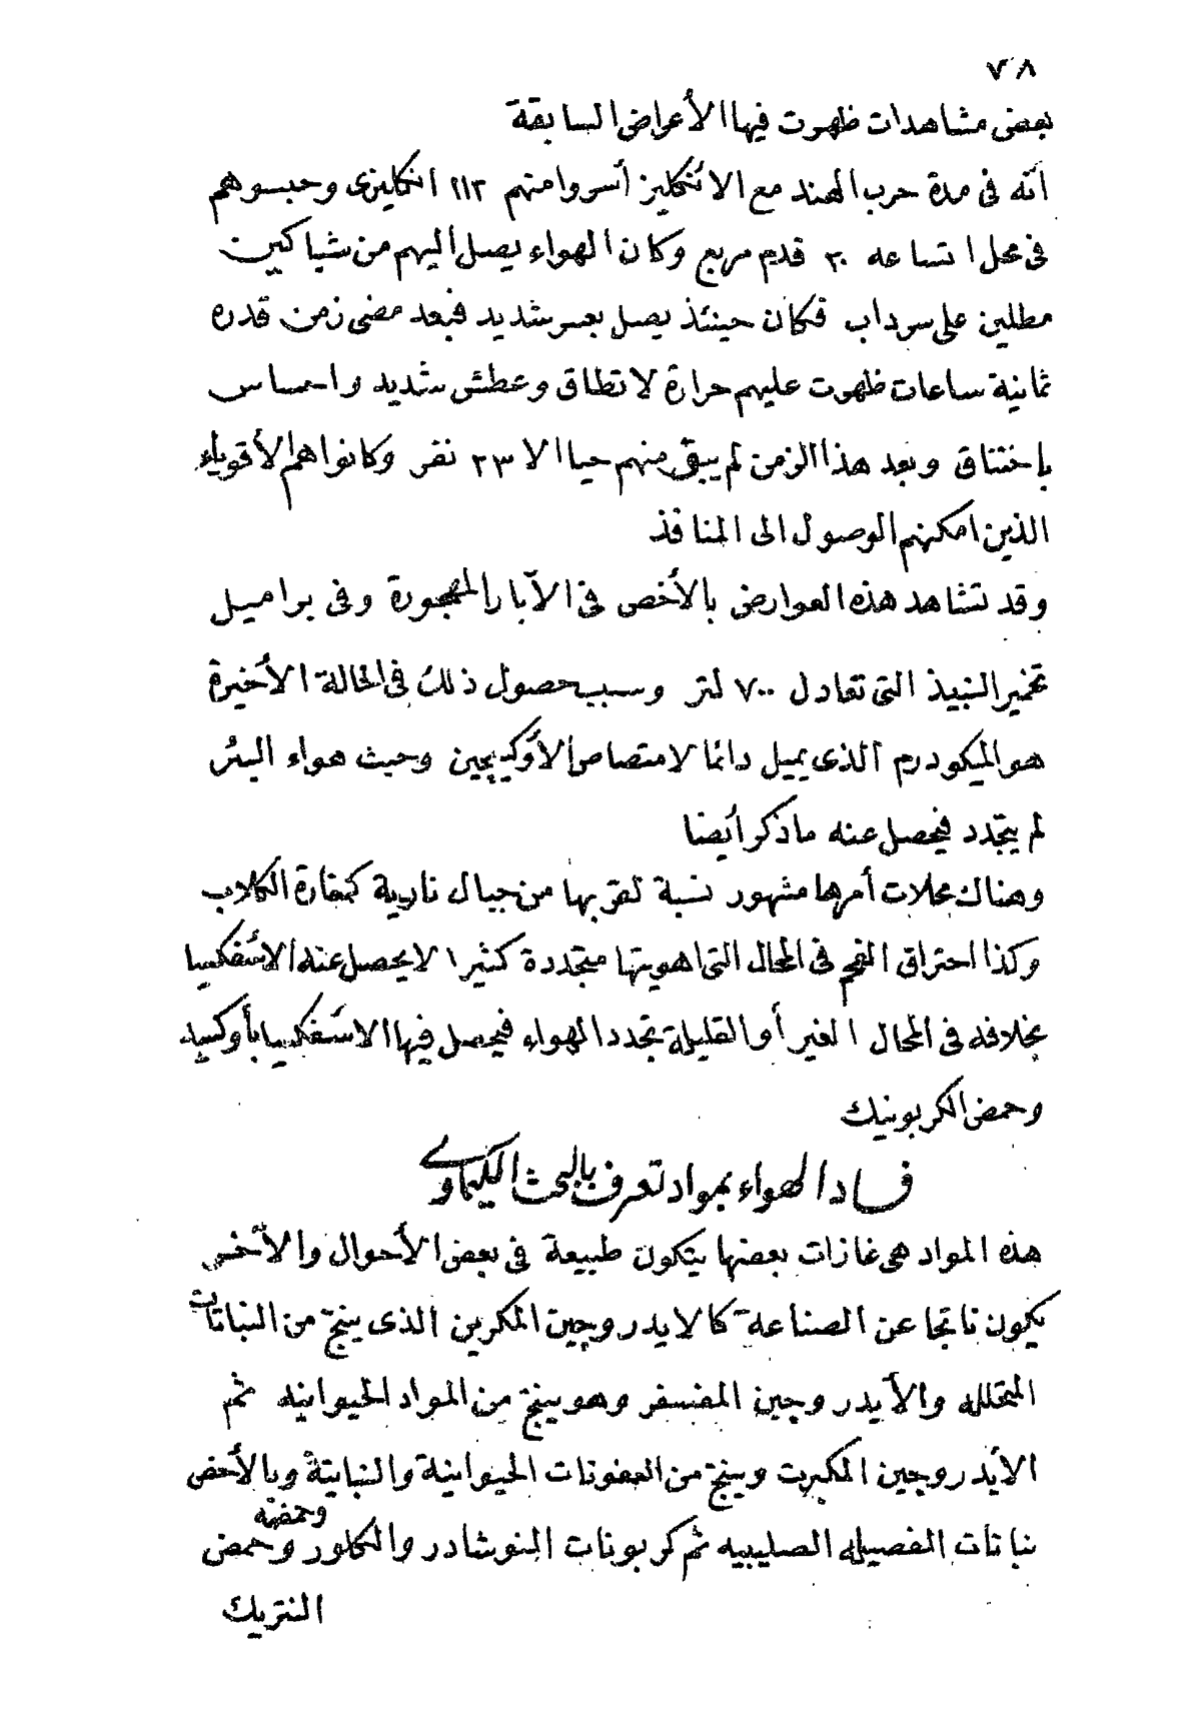 ٧٨
بعض مشاهدات ظهرت فيها الأعراض السابقة
أنه فى مدة حرب الهند مع الانكليز أسروا منهم ١١٣ انكليزى وحبسوهم
فى محل اتساعه ٢٠ قدم مربع وكان الهواء يصل اليهم من شباكين
مطلين على سرداب فكان حينئذ يصل بعسر شديد فبعد مضى زمن قدره
ثمانية ساعات ظهرت عليهم حرارة لا تطاق وعطش شديد واحساس
باختناق وبعد هذا الزمن لم يبق منهم حيا الا ٢٣ نفر وكانوا هم الأقوياء
الذين امكنهم الوصول الى المنافذ
وقد تشاهد هذه العوارض بالأخص فى الآبار المهجورة وفى براميل
تخمير النبيذ التى تعادل ٧٠٠ لتر وسبب حصول ذلك فى الحالة الأخيرة
هو الميكودرم الذى يميل دائما لامتصاص الأوكسيجين وحيث هواء البئر
لم يتجدد فيحصل عنه ما ذكر أيضا
وهناك محلات أمرها مشهور نسبة لقربها من جبال نارية كمغارة الكلاب
وكذا احتراق الفحم فى المحال التى اهويتها متجددة كثيرا لا يحصل عنه الاسفكسيا
بخلافه فى المحال الغير أو القليلة تجدد الهواء فيحصل فيها الاسفكسيا بأوكسيد
وحمض الكربونيك
فساد الهواء بمواد تعرف بالبحث الكيماوى
هذه المواد هى غازات بعضها يتكون طبيعة فى بعض الأحوال والآخر
يكون ناتجا عن الصناعة كالايدروجين المكربن الذى ينتج من النباتات
المتحلله والأيدروجين المفسفر وهو ينتج من المواد الحيوانيه ثم
الأيدروجين المكبرت وينتج من العفونات الحيوانية والنباتية وبالأخص
نباتات الفصيله الصليبيه ثم كربونات النوشادر والكلور وحمضه وحمض
النتريك